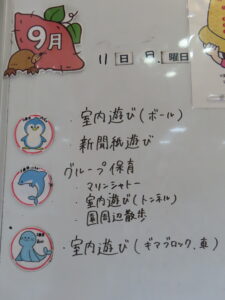 9月
11 日 月 曜日
・室内遊び(ボール)
新聞紙遊び
グループ保育
・マリンシャトー
・室内遊び(トンネル)
・園周辺散歩
・室内遊び(ギアブロック、